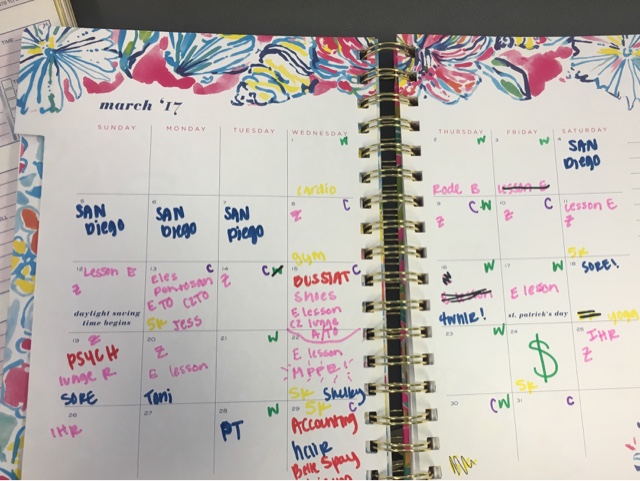 march '17
SUNDAY MONDAY TUESDAY WEDNESDAY THURSDAY FRIDAY SATURDAY
1 W
cardio
2 W
Rode B
3 W
Lesson E
4
SAN
Diego
5
SAN
Diego
6
SAN
Diego
7
SAN
Diego
8 C
Z
gym
9 C W
Z
10 C
Z
11
Lesson E
Z
5k
12
Lesson E
Z
daylight saving
time begins
13 C
ETO CZTO
5k Jess
14 C
Z
15 C
BUSSTAT
Shoes
E lesson
CZ lunge
A/TO
16 W
4wnlr!
17 W
E lesson
st. patrick's day
18
SORE!
yoga
19
Z
PSYCH
lunge R
SORE
20
Z
E lesson
Toni
21 W
22
E lesson
MPRE!
5k Shelby
23 W
24
$
5k
25
IHR
Z
26
IHR
27
28 W
PT
29 C
5k
Accounting
hair
Belle Spay
30 C W
31 C